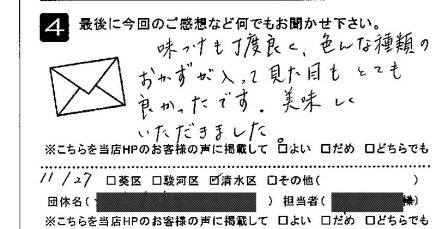 4 最後に今回のご感想など何でもお聞かせ下さい。
味つけも丁度良く、色んな種類の
おかずが入って見た目もとても
良かったです。美味しく
いただきました
※こちらを当店HPのお客様の声に掲載して □よい □だめ □どちらでも
11/27 □葵区 □駿河区 ☑清水区 □その他( )
団体名( ) 担当者( 様)
※こちらを当店HPのお客様の声に掲載して □よい □だめ □どちらでも